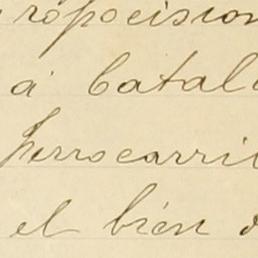 ropocision
á batal
ferrocarri
el bien d